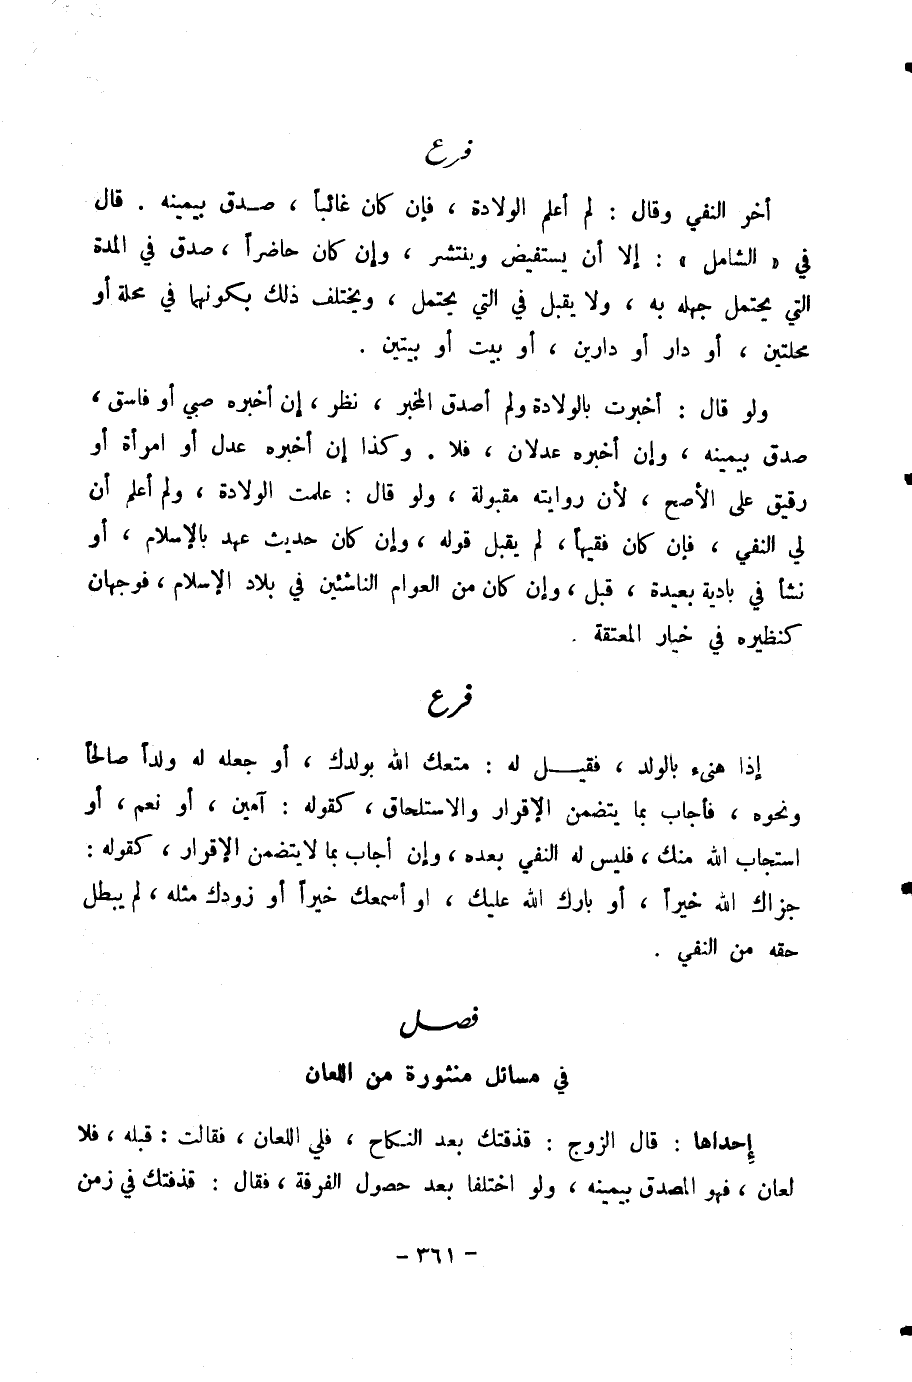 فرع
أخر النفي وقال : لم أعلم الولادة ، فإن كان غائباً ، صدق بيمينه . قال
في « الشامل » : إلا أن يستفيض وينتشر ، وإن كان حاضراً ، صدق في المدة
التي يحتمل جهله به ، ولا يقبل في التي يحتمل ، ويختلف ذلك بكونها في محلة أو
محلتين ، أو دار أو دارين ، أو بيت أو بيتين .
ولو قال : أخبرت بالولادة ولم أصدق المخبر ، نظر ، إن أخبره صبي أو فاسق ،
صدق بيمينه ، وإن أخبره عدلان ، فلا . وكذا إن أخبره عدل أو امرأة أو
رقيق على الأصح ، لأن روايته مقبولة ، ولو قال : علمت الولادة ، ولم أعلم أن
لي النفي ، فإن كان فقيهاً ، لم يقبل قوله ، وإن كان حديث عهد بالإسلام ، أو
نشأ في بادية بعيدة ، قبل ، وإن كان من العوام الناشئين في بلاد الإسلام ، فوجهان
كنظيره في خيار المعتقة .
فرع
إذا هنىء بالولد ، فقيل له : متعك الله بولدك ، أو جعله له ولداً صالحاً
ونحوه ، فأجاب بما يتضمن الإقرار والاستلحاق ، كقوله : آمين ، أو نعم ، أو
استجاب الله منك ، فليس له النفي بعده ، وإن أجاب بما لايتضمن الإقرار ، كقوله :
جزاك الله خيراً ، أو بارك الله عليك ، او أسمعك خيراً أو زودك مثله ، لم يبطل
حقه من النفي .
فصل
في مسائل منثورة من اللعان
إحداها : قال الزوج : قذفتك بعد النكاح ، فلي اللعان ، فقالت : قبله ، فلا
لعان ، فهو المصدق بيمينه ، ولو اختلفا بعد حصول الفرقة ، فقال : قذفتك في زمن
- ٣٦١ -